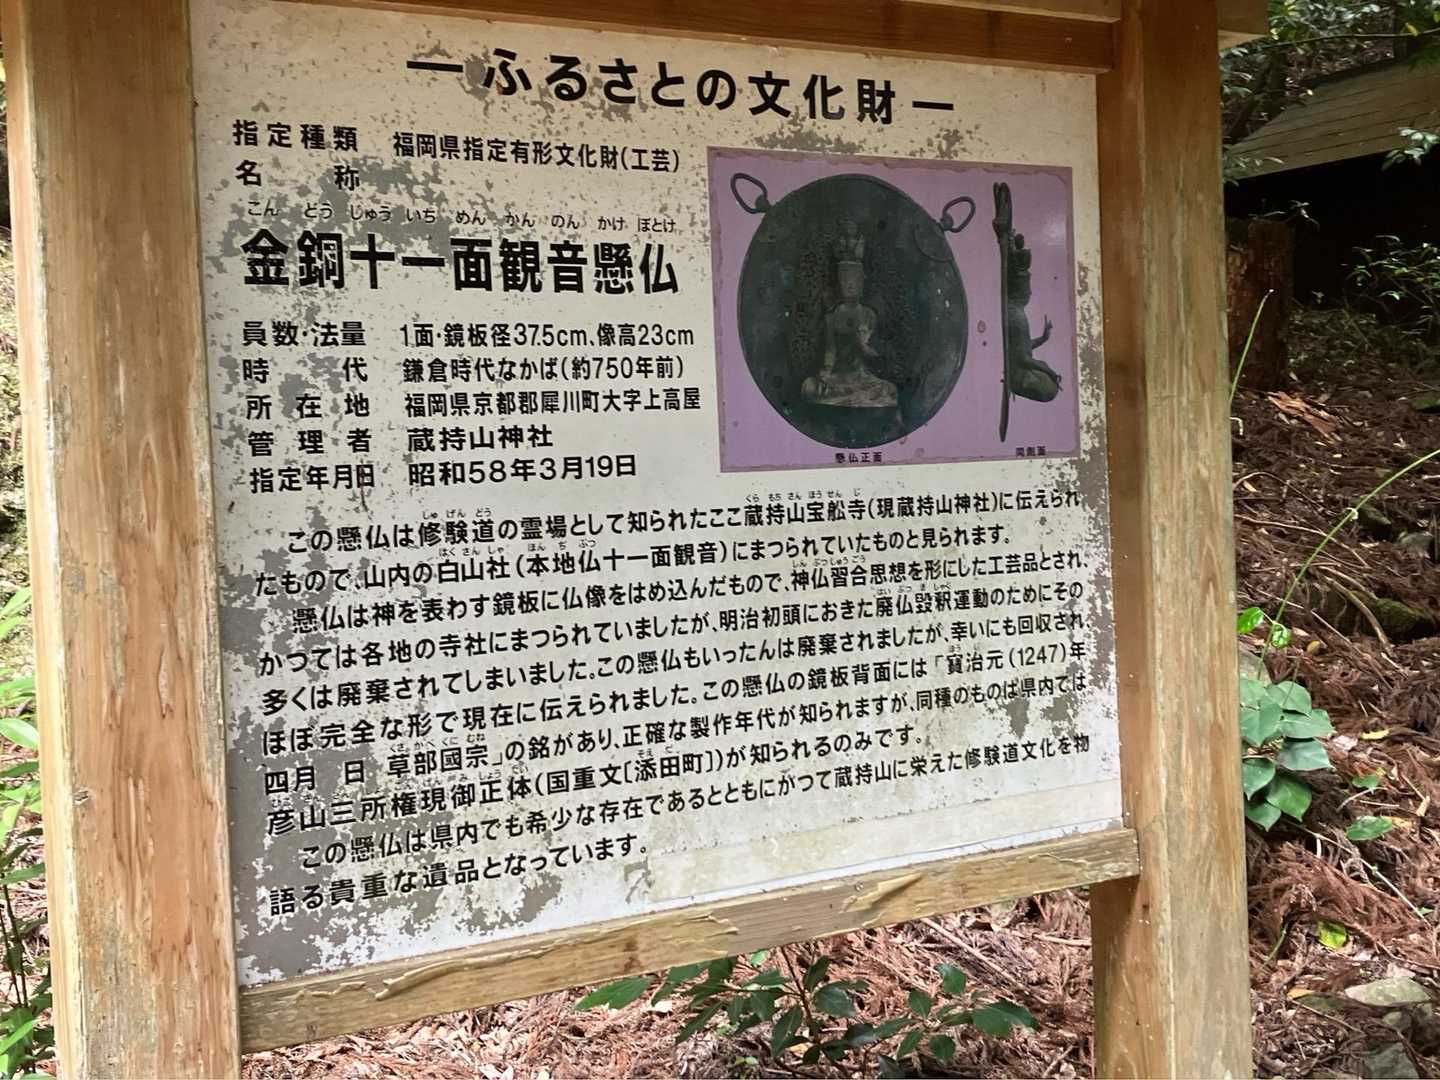 ーふるさとの文化財ー
指定種類 福岡県指定有形文化財(工芸)
名称
こん どう じゅう いち めん かん のん かけ ぼとけ
金銅十一面観音懸仏
員数・法量 1面・鏡板径37.5cm、像高23cm
時代 鎌倉時代なかば(約750年前)
所在地 福岡県京都郡犀川町大字上高屋
管理者 蔵持山神社
指定年月日 昭和58年3月19日
懸仏正面 同側面
しゅげんどう くらもちさんほうせんじ
この懸仏は修験道の霊場として知られたここ蔵持山宝舩寺(現蔵持山神社)に伝えられ
はくさんしゃ ほんぢぶつ
たもので、山内の白山社(本地仏十一面観音)にまつられていたものと見られます。
しんぶつしゅうごう
懸仏は神を表わす鏡板に仏像をはめ込んだもので、神仏習合思想を形にした工芸品とされ、
はいぶつきしゃく
かつては各地の寺社にまつられていましたが、明治初頭におきた廃仏毀釈運動のためにその
多くは廃棄されてしまいました。この懸仏もいったんは廃棄されましたが、幸いにも回収され、
ほうじ
ほぼ完全な形で現在に伝えられました。この懸仏の鏡板背面には「寳治元(1247)年
くさかべくにむね
四月 日 草部國宗」の銘があり、正確な製作年代が知られますが、同種のものは県内では
そえだ
彦山三所権現御正体(国重文[添田町])が知られるのみです。
この懸仏は県内でも希少な存在であるとともにがつて蔵持山に栄えた修験道文化を物
語る貴重な遺品となっています。